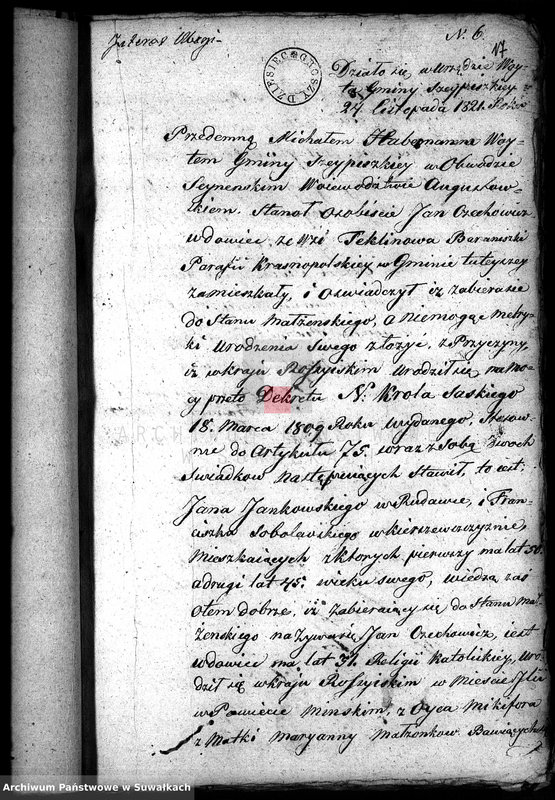 N. 6.
17
DZIESIĘĆ GROSZY
Działo się w Urzędzie Woy-
ta Gminy Szeypiszkiey
27 Listopada 1821. Roku
Przedemną Michałem Habermann Woy-
tem Gminy Szeypiszkiey w Obwodzie
Seynenskim Woiewodztwie Augustow-
skiem. Stanoł osobiście Jan Czechowicz
wdowiec ze Wsi Teklinowa
Parafii Krasnopolskiey w Gminie tuteyszey
zamieszkały, i oświadczył iż zabiera sie
do Stanu Małżenskiego, a niemogąc Metry-
ki urodzenia swego złożyć, z Przyczyny,
iż w kraju Rossyiskim urodził się, na mo-
cy przeto Dekretu N: Krola Saskiego
18. Marca 1809 Roku wydanego, Stosow-
nie do Artykułu 75. wraz z Sobą dwoch
Swiadkow następuiących Stawił, to iest:
Jana Jankowskiego w Rudawie, i Fran-
ciszka Sobolewskiego w
Mieszkaiących z ktorych pierwszy ma lat 50.
a drugi lat 45. wieku swego, wiedzą zaś
otem dobrze, iż zabieraiący się do Stanu Mał-
żenskiego nazywa się Jan Czechowicz, iest
wdowiec ma lat 31. Religii Katolickiey, uro-
dził się w kraju Rossyiskim w Miescie
w Powiecie Minskim, z Oyca Nikifora
z Matki Maryanny Małżonkow
Archiwum Państwowe w Suwałkach